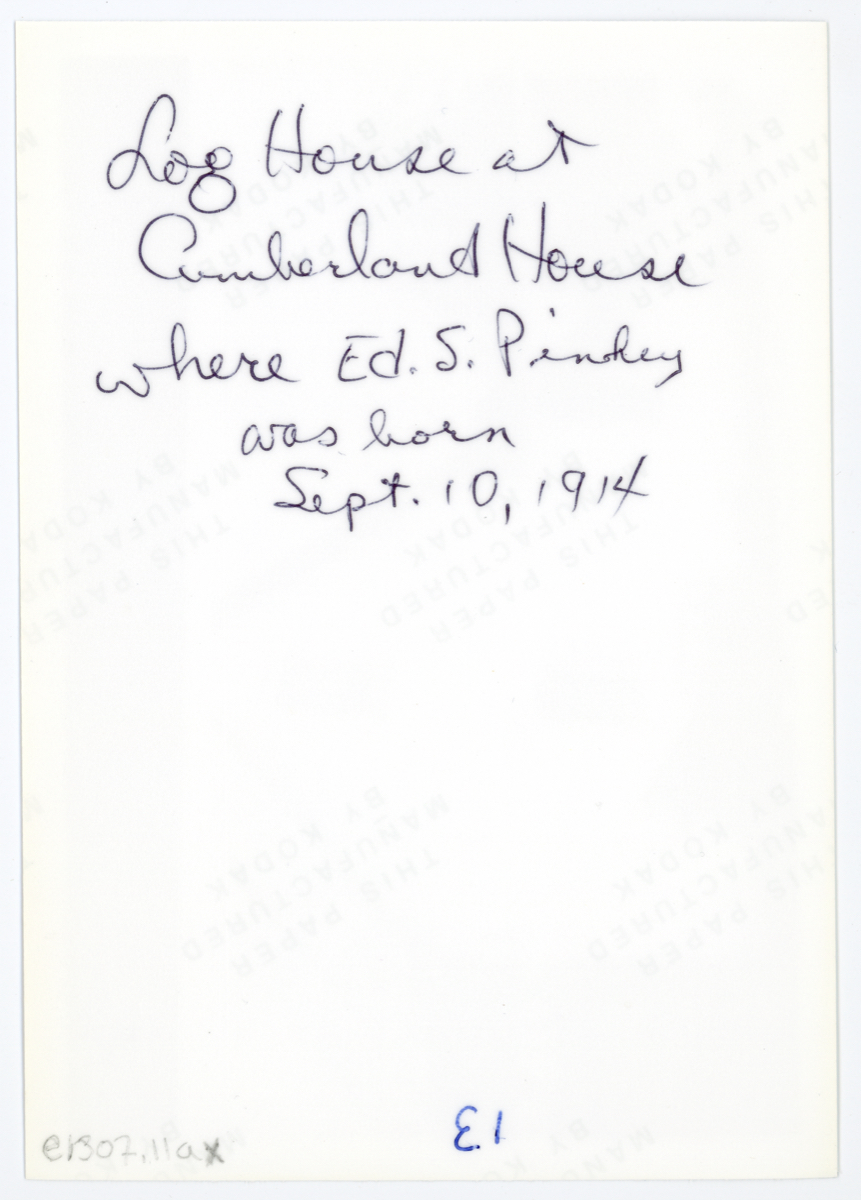 Log House at
Cumberland House
where Ed. S. Pinkey
was born
Sept. 10, 1914
THIS PAPER
MANUFACTURED
BY KODAK
13
e1307.11ax